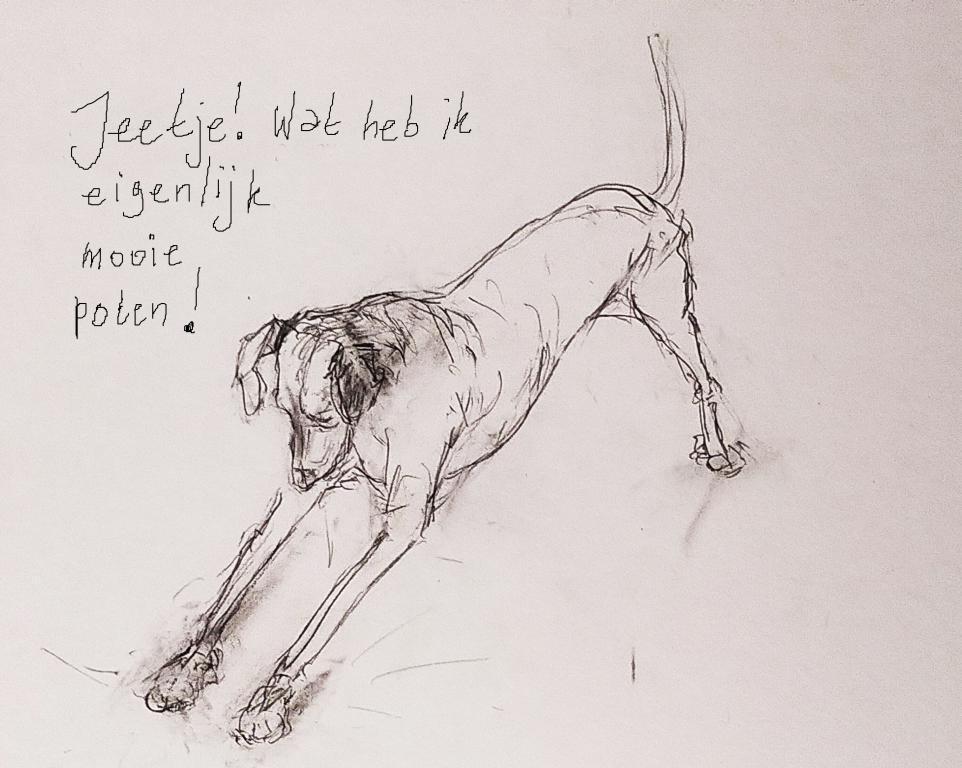 Jeetje! Wat heb ik
eigenlijk
mooie
poten!